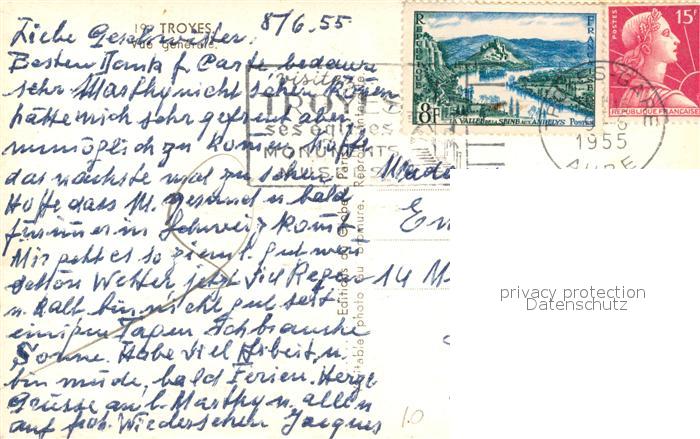 197 TROYES
Vue générale.
8/6.55
Liebe Geschwister.
Besten Dank f. Carte, bedaure
sehr Marthy nicht sehen können
hätte mich sehr gefreut aber
unmöglich zu kommen. Hoffe
das nächste mal zu sehen
Hoffe dass M. gesund u. bald
für immer in Schweiz kommt
Mir geht es so ziemt. gut war
schön Wetter jetzt viel Regen
u. kalt, bin nicht gut seit
einigen Tagen. Ich brauche
Sonne. Habe viel Arbeit, u.
bin müde, bald Ferien. Herzl
Grüsse an l. Marthy u. allen
auf Wiedersehen Jacques
Visitez
TROYES
ses églises
MONUMENTS
REPUBLIQUE FRANÇAISE
8F
LA VALLEE DE LA SEINE AUX ANDELYS Postes
POSTES
15F
REPUBLIQUE FRANÇAISE
TROYES GARE
1955
AUBE
Editions du Globe, Paris
Véritable photo au bromure. Reproduction interdite
14
1.0
privacy protection
Datenschutz